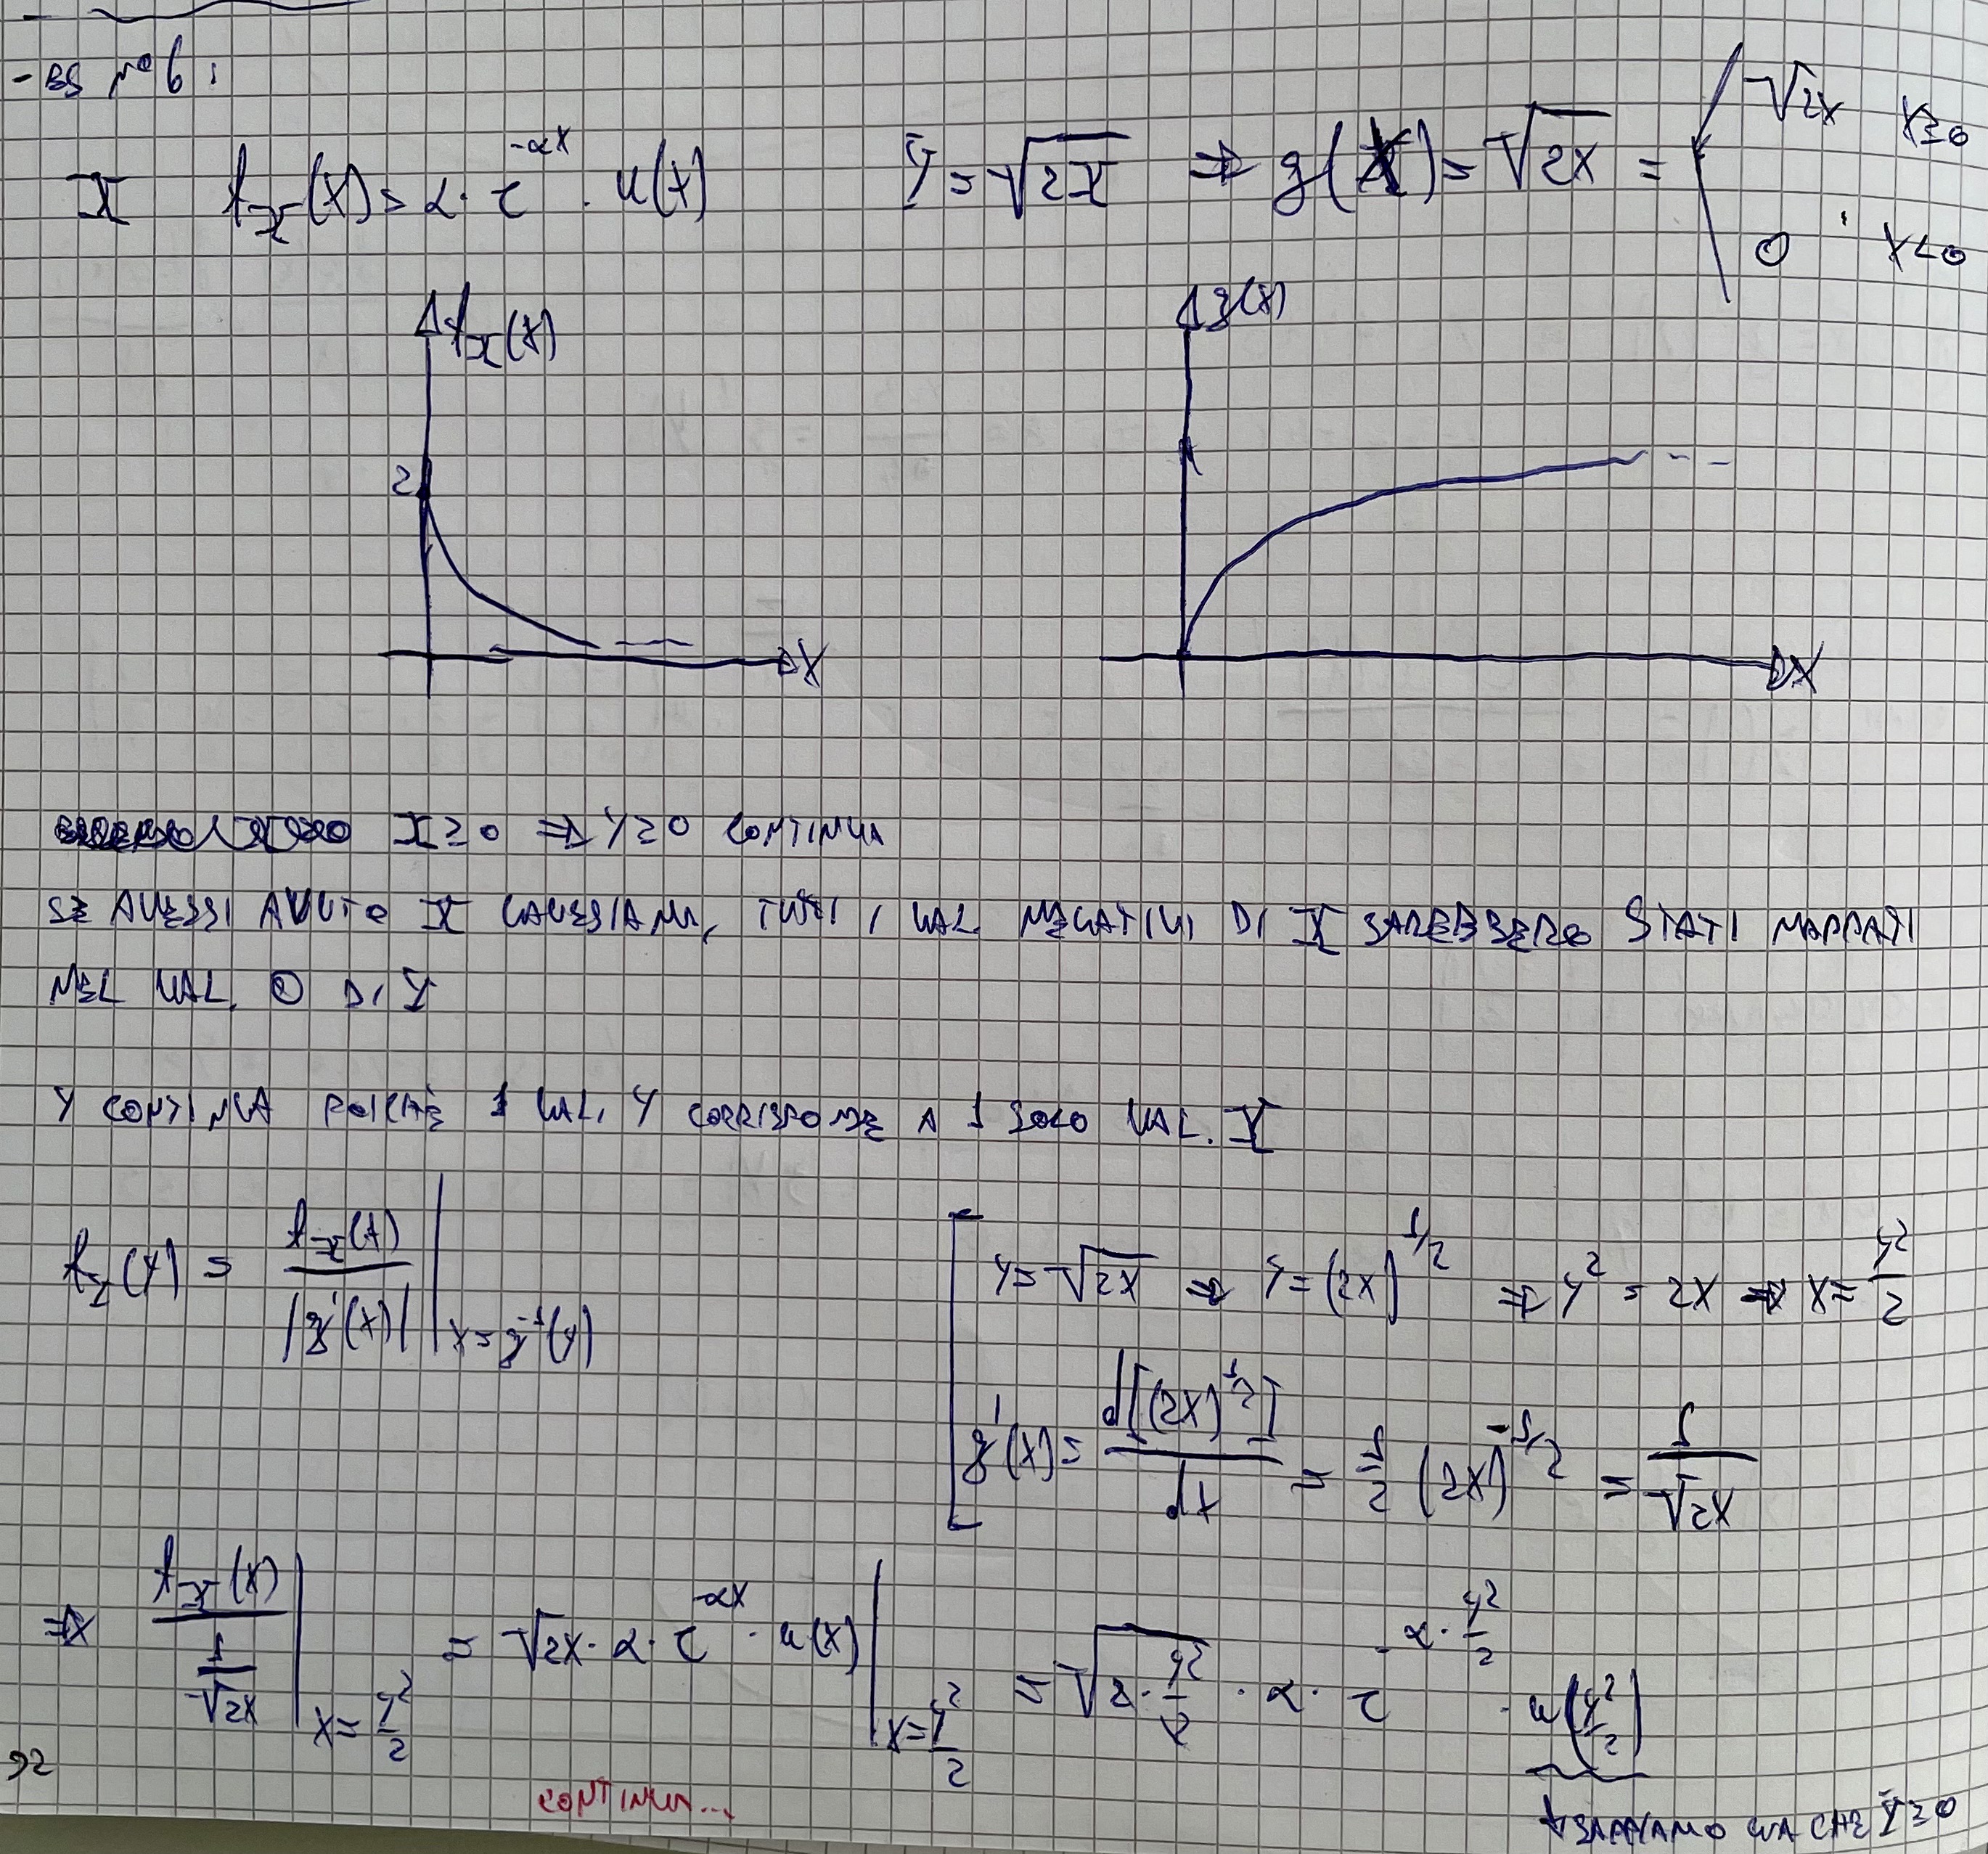 - ES N° 6:
X f_X(x) = α · e^{-αx} · u(x) Y = √(2X) ⇒ g(x) = √(2x) = { √2x x≥0
0 x<0
f_X(x) g(x)
2
x x
X ≥ 0 ⇒ Y ≥ 0 CONTINUA
SE AVESSI AVUTO X GAUSSIANA, TUTTI I VAL. NEGATIVI DI X SAREBBERO STATI MAPPATI
NEL VAL. 0 DI Y
Y CONTINUA POICHÈ 1 VAL. Y CORRISPONDE A 1 SOLO VAL. X
f_Y(y) = f_X(x) / |g'(x)| |_{x = g^{-1}(y)}
[ y = √(2x) ⇒ y = (2x)^{1/2} ⇒ y² = 2x ⇒ x = y²/2
g'(x) = d[(2x)^{1/2}]/dx = 1/2 (2x)^{-1/2} = 1/√(2x)
⇒ f_X(x) / (1/√(2x)) |_{x = y²/2} = √(2x) · α · e^{-αx} · u(x) |_{x = y²/2} = √(2 · y²/2) · α · e^{-α · y²/2} · u(y²/2)
92
CONTINUA...
SAPPIAMO GIA CHE Y ≥ 0